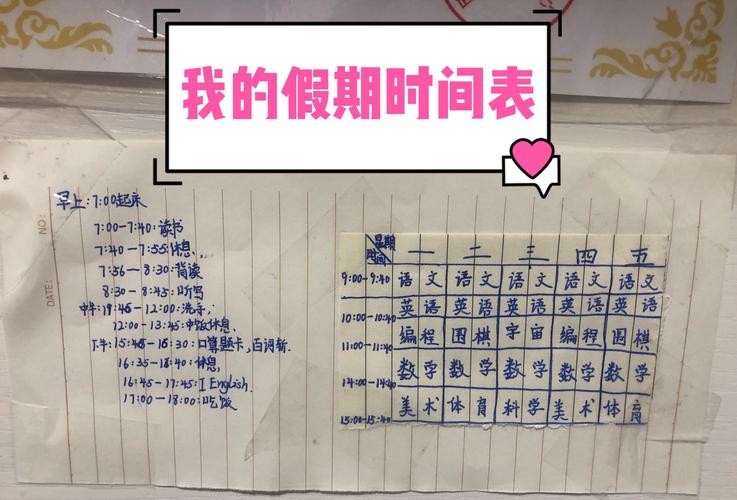 我的假期时间表
NO:
DATE:
早上:7:00起床
7:00-7:40:读书
7:40-7:55:休息,
7:56-8:30:背读
8:30-8:45:听写
中午:11:45-12:00:洗手.
12:00-13:45:中饭休息.
下午:15:45-16:30:口算题卡,百词斩.
16:35-16:40:休息,
16:45-17:45:I English.
17:00-18:00:吃饭
时间 星期 一 二 三 四 五
9:00-9:40 语文 语文 语文 语文 语文
10:00-10:40 英语 英语 英语 英语 英语
11:00-11:40 编程 围棋 宇宙 编程 围棋
14:00-14:40 数学 数学 数学 数学 数学
15:00-15:40 美术 体育 科学 美术 体育